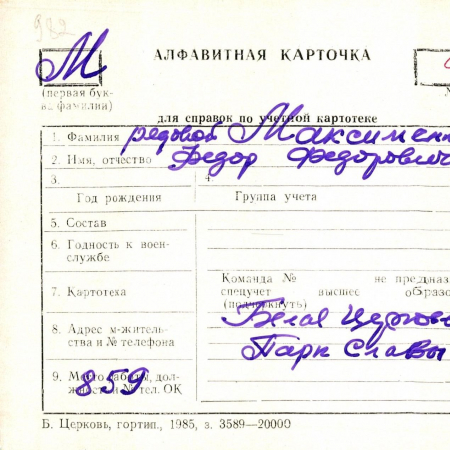 982
М
АЛФАВИТНАЯ КАРТОЧКА
(первая бук-
ва фамилии)
для справок по учетной картотеке
1. Фамилия рядовой Максименк
2. Имя, отчество Федор Федорович
3. 4.
Год рождения Группа учета
5. Состав
6. Годность к воен-
службе
7. Картотека
Команда № не предназ
спецучет высшее образо
(подчеркнуть)
8. Адрес м-житель-
ства и № телефона
Белая Церковь
Парк Славы
9. Место работы, дол-
жность и № тел. ОК
859
Б. Церковь, гортип., 1985, з. 3589—20000